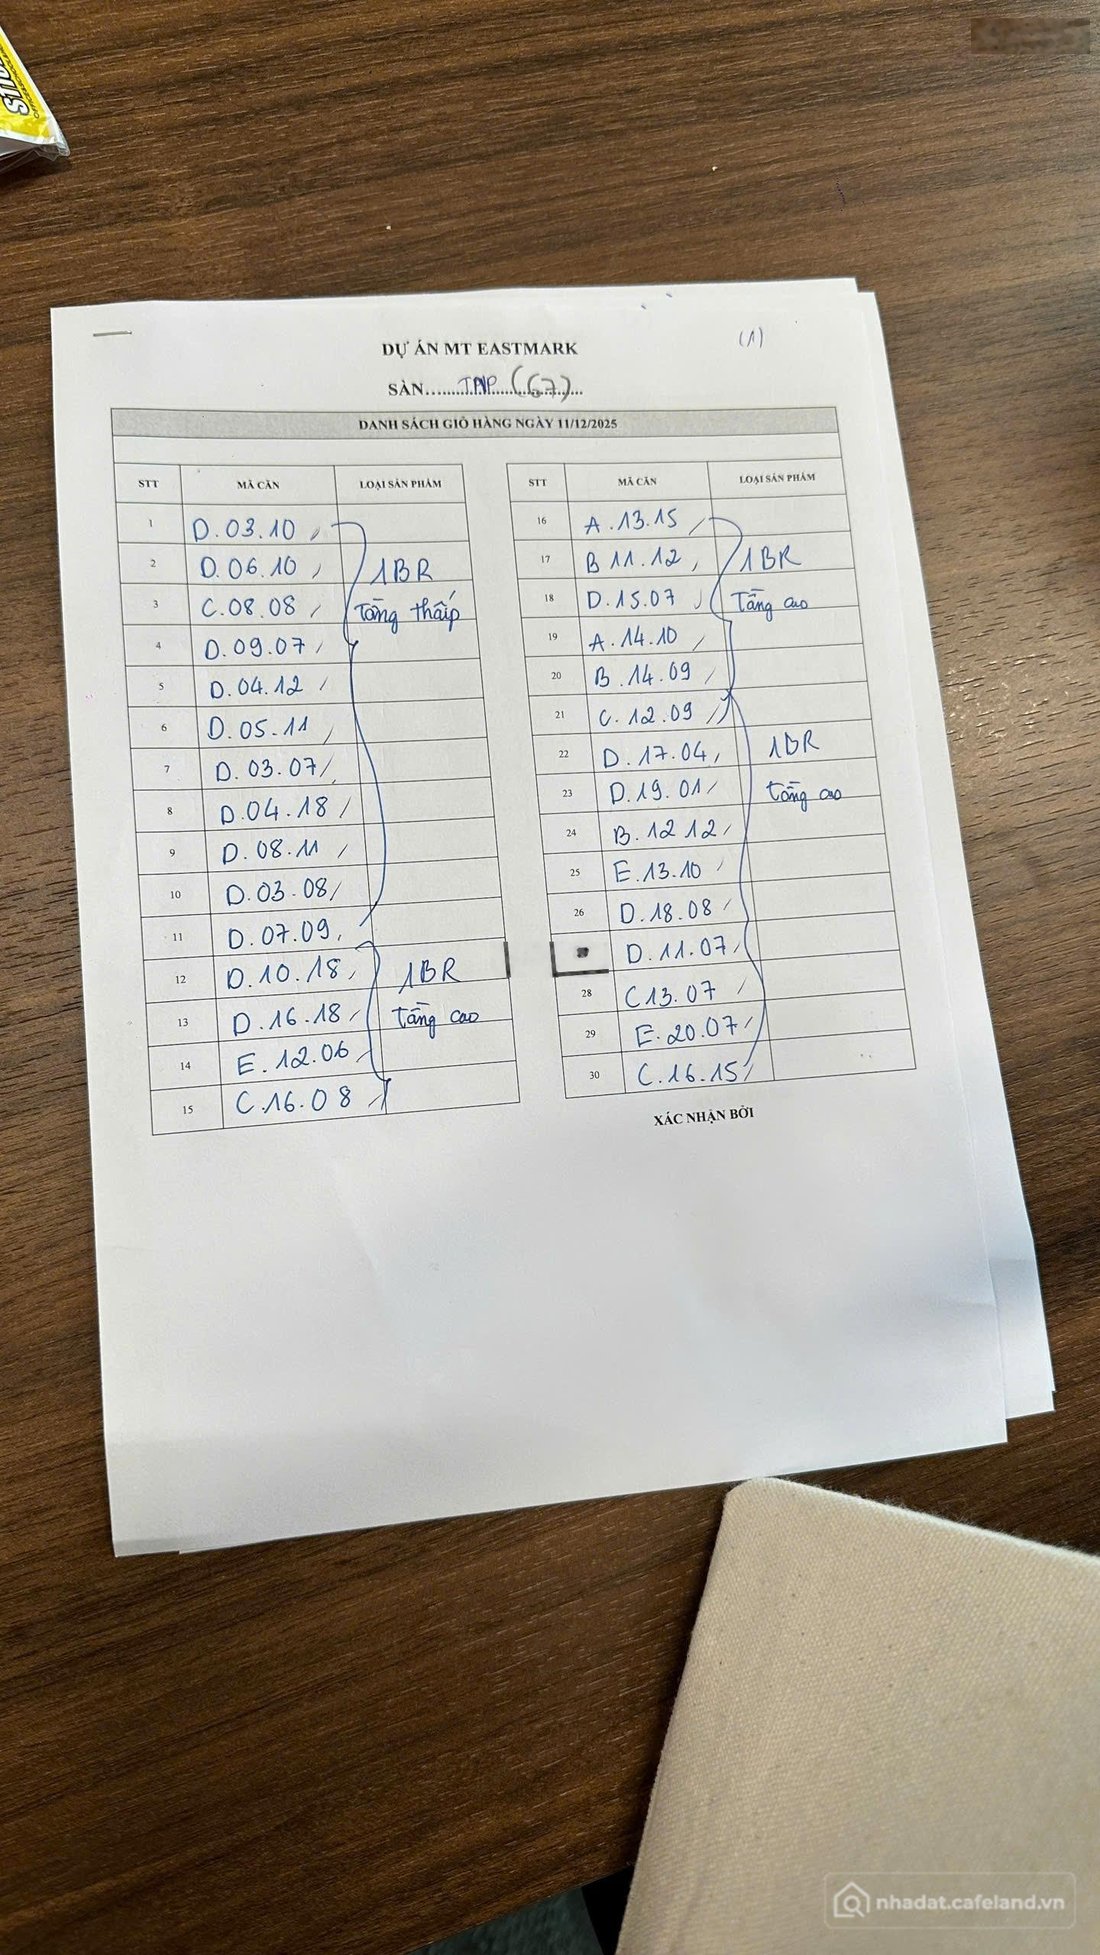 (1)
DỰ ÁN MT EASTMARK
SÀN.......TPNP (67)....
DANH SÁCH GIỎ HÀNG NGÀY 11/12/2025
STT MÃ CĂN LOẠI SẢN PHẨM
1 D.03.10
2 D.06.10 1BR
3 C.08.08 Tầng thấp
4 D.09.07
5 D.04.12
6 D.05.11
7 D.03.07
8 D.04.18
9 D.08.11
10 D.03.08
11 D.07.09
12 D.10.18 1BR
13 D.16.18 Tầng cao
14 E.12.06
15 C.16.08
STT MÃ CĂN LOẠI SẢN PHẨM
16 A.13.15
17 B 11.12 1BR
18 D.15.07 Tầng cao
19 A.14.10
20 B.14.09
21 C.12.09
22 D.17.04 1BR
23 D.19.01 Tầng cao
24 B.12 12
25 E.13.10
26 D.18.08
D.11.07
28 C13.07
29 E.20.07
30 C.16.15
XÁC NHẬN BỞI
nhadat.cafeland.vn